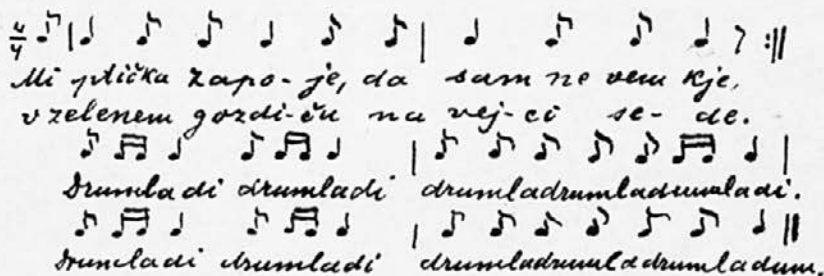 4/4
Mi ptička zapo-je, da sam ne vem kje,
v zelenem gozdi-ču na vej-ci se-de.
Drumladi drumladi drumladrumladrumladi.
Drumladi drumladi drumladrumladrumladum.